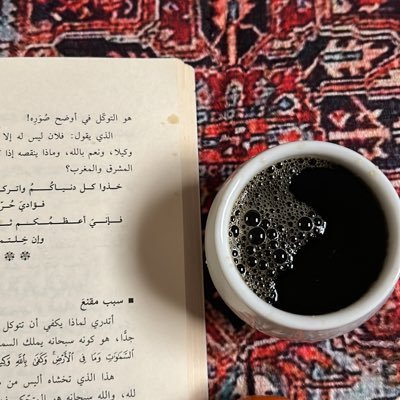 هو التوكّل في أوضح صُوَرِه!
الذي يقول: فلان ليس له إلا
وكيلا، ونعم بالله، وماذا ينقصه إذا
المشرق والمغرب؟
خذوا كل دنياكُمُ واتركـ
فؤاديَ حُرًّ
فـإنيَ أعظمُكـم ثـ
وإن خِلتمـ
■ سبب مقنعٌ
أتدري لماذا يكفي أن تتوكل
جدًّا، هو كونه سبحانه يملك السمـ
ٱلسَّمَٰوَٰتِ وَمَا فِي ٱلْأَرْضِ وَكَفَىٰ بِٱللَّهِ وَكِيـ
هذا الذي تخشاه أليس من
لله، والله سبحانه هو